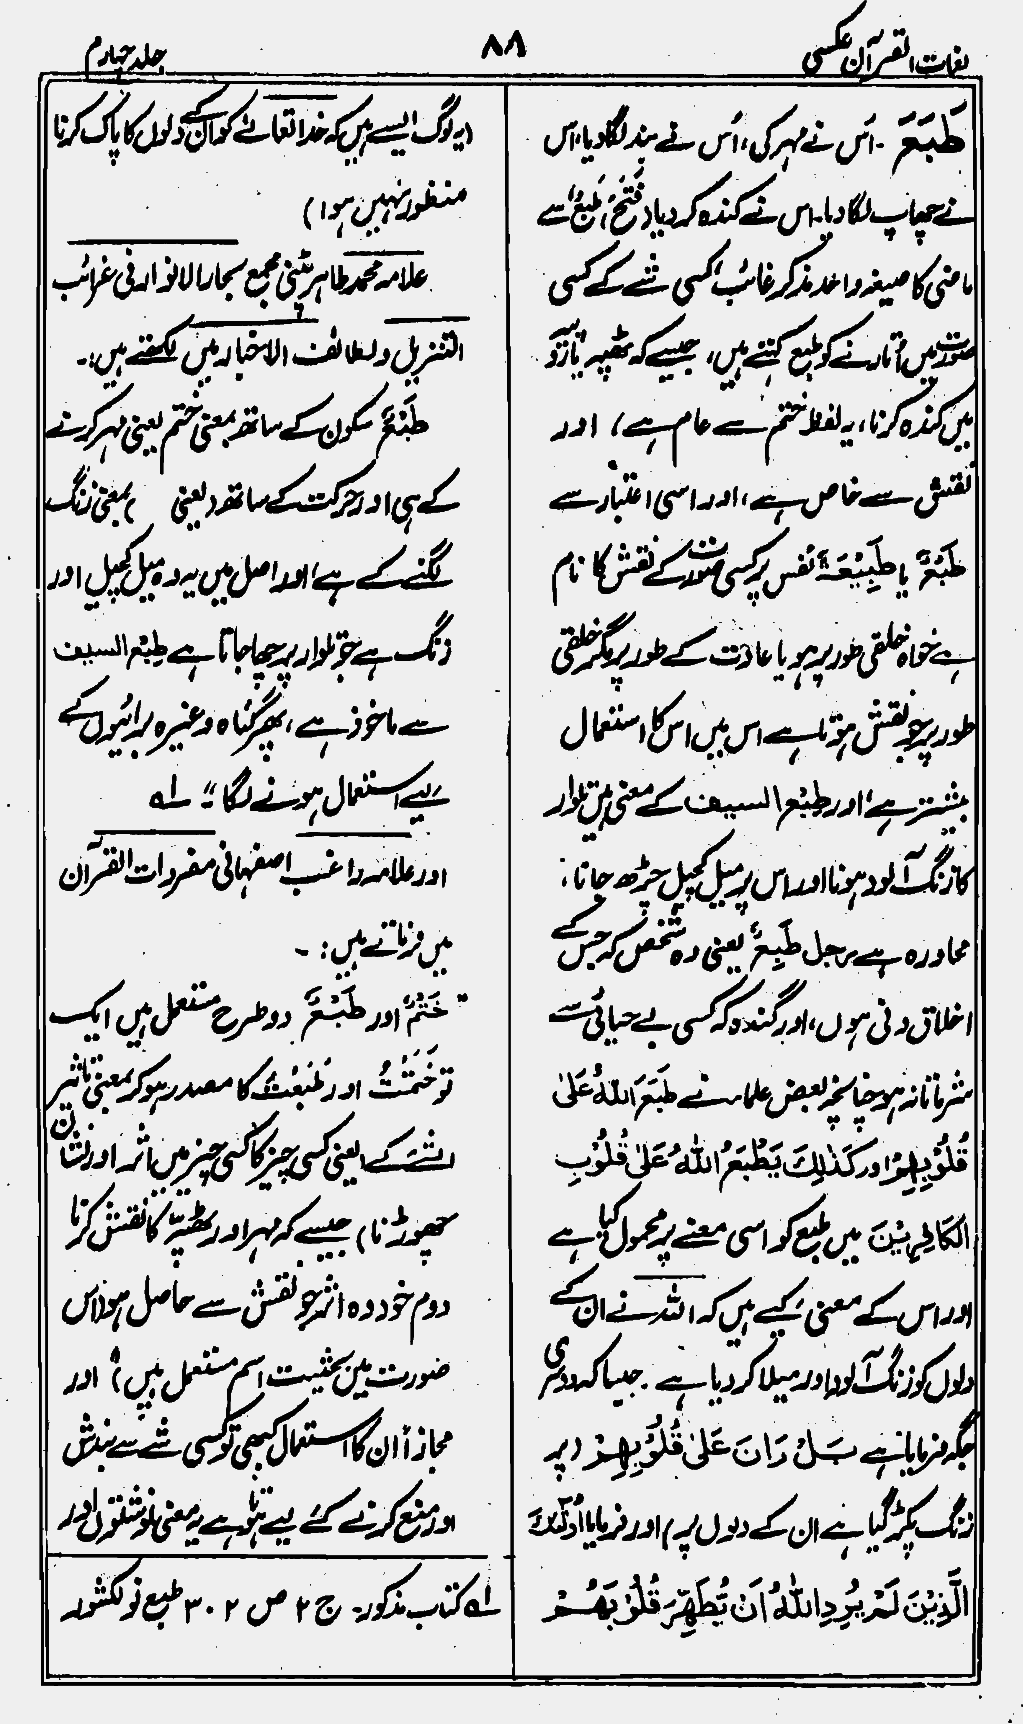 لغات القرآن عکسی
۸۸
جلد چہارم
طَبَعَ ۔ اس نے مہر کی، اُس نے بند لگا دیا، اس
نے چھاپ لگا دیا۔ اس نے کندہ کر دیا (فَتَحَ) طَبْعٌ سے
ماضی کا صیغہ واحد مذکر غائب، کسی شئے کے کسی
صورت میں اُتارنے کو طبع کہتے ہیں، جیسے کہ ٹھپہ یا
میں کندہ کرنا، یہ لفظ ختم سے عام ہے، اور
نقش سے خاص ہے، اور اسی اعتبار سے
طَبْعٌ یا طَبِیْعَۃٌ نفس پر کسی صورت کے نقش کا نام
ہے خواہ خلقی طور پر ہو یا عادت کے طور پر مگر خلقی
طور پر جو نقش ہوتا ہے اس میں اس کا استعمال
بیشتر ہے، اور طِبْعُ السیف کے معنی ہیں تلوار
کا زنگ آلود ہونا اور اس پر میل کچیل چڑھ جانا،
محاورہ ہے رجل طَبِعٌ یعنی وہ شخص کہ جس کے
اخلاق دنی ہوں، اور گندہ کہ کسی بے حیائی سے
شرماتا نہ ہو چنانچہ بعض علماء نے طَبَعَ اللہُ عَلیٰ
قُلُوْبِہِمْ اور کَذٰلِکَ یَطْبَعُ اللہُ عَلیٰ قُلُوْبِ
الْکَافِرِیْنَ میں طبع کو اسی معنے پر محمول کیا ہے
اور اس کے معنی کیے ہیں کہ اللہ نے ان کے
دلوں کو زنگ آلود اور میلا کر دیا ہے ۔ جیسا کہ دوسری
جگہ فرمایا ہے بَلْ رَانَ عَلیٰ قُلُوْبِہِمْ (پر
زنگ پکڑ گیا ہے ان کے دلوں پر) اور فرمایا اُولٰئِکَ
الَّذِیْنَ لَمْ یُرِدِ اللہُ اَنْ یُّطَہِّرَ قُلُوْبَہُمْ
(یہ لوگ ایسے ہیں کہ خدا تعالےٰ کو ان کے دلوں کا پاک کرنا
منظور نہیں ہوا)
علامہ محمد طاہر پٹنی مجمع بحار الانوار فی غرائب
التنزیل و لطائف الاخبار میں لکھتے ہیں:۔
طَبْعٌ سکون کے ساتھ بمعنی ختم یعنی مہر کرنے
کے ہی اور حرکت کے ساتھ (یعنی ) بمعنی زنگ
لگنے کے ہے، اور اصل میں یہ وہ میل کچیل اور
زنگ ہے جو تلوار پر چھا جاتا ہے طِبْعُ السیف
سے ماخوذ ہے، پھر گناہ وغیرہ برائیوں کے
لیے استعمال ہونے لگا" لہ
اور علامہ راغب اصفہانی مفردات القرآن
میں فرماتے ہیں :۔
"خَتْمٌ اور طَبْعٌ دو طرح مستعمل ہیں ایک
تو خَتَمْتُ اور طَبَعْتُ کا مصدر ہو کر بمعنی تاثیر
الشئے کے (یعنی کسی چیز کا کسی چیز میں اثر اور نشان
چھوڑنا) جیسے کہ مہر اور ٹھپّہ کا نقش کرنا
دوم خود وہ اثر جو نقش سے حاصل ہو (اس
صورت میں بحیثیت اسم مستعمل ہیں) اور
مجازاً ان کا استعمال کبھی تو کسی شئے سے بندش
اور منع کرنے کے لیے ہوتا ہے یہ معنی نوشتوں اور
لہ کتاب مذکور۔ ج ۲ ص ۳۰۲ طبع نولکشور